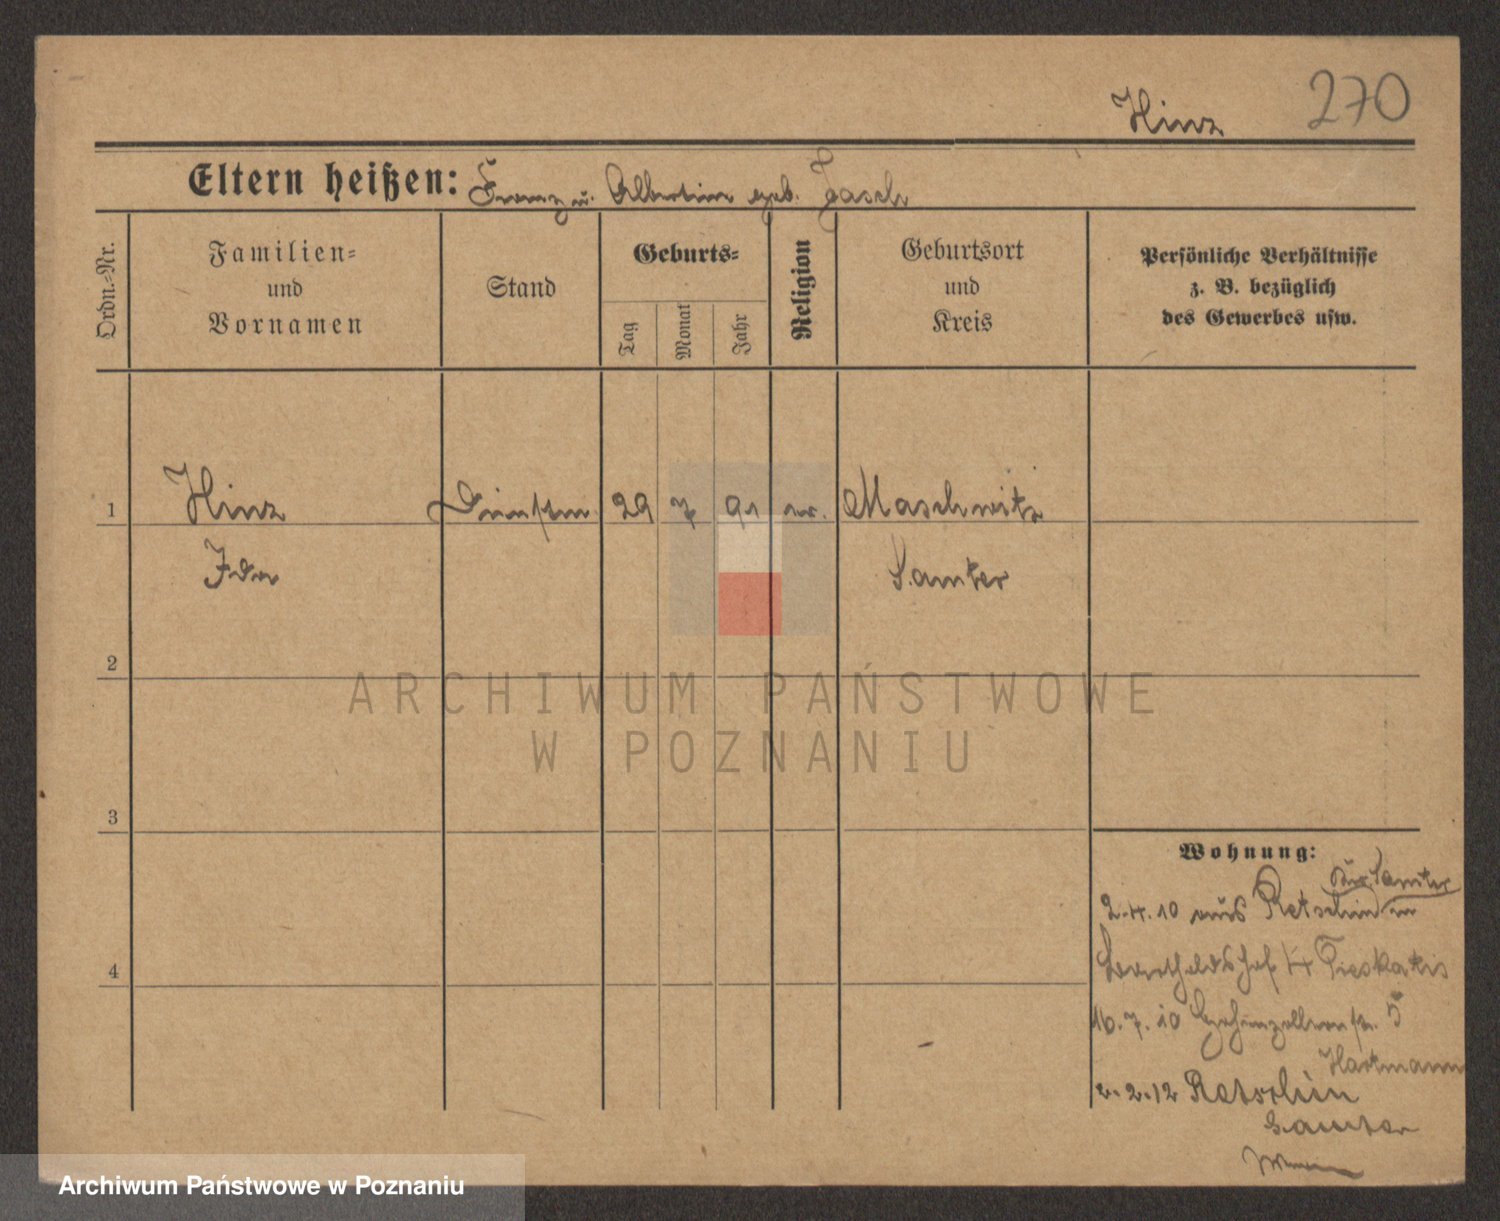 Hinz 270
Eltern heißen: Franz u. Albertine geb. Jasch
Ordn.-Nr.
Familien-
und
Vornamen
Stand
Geburts-
Tag
Monat
Jahr
Religion
Geburtsort
und
Kreis
Persönliche Verhältnisse
z. B. bezüglich
des Gewerbes usw.
1 Hinz Dienstm. 29 7 91 ev. Maschwitz
Ida Samter
2
ARCHIWUM PAŃSTWOWE
W POZNANIU
3
Wohnung:
Kr. Samter
2.4.10 aus Retschin in
4
Bertholdshof 4 Pieskatis
16.7.10 Hohenzollernstr. 5
Hartmann
2.2.12 Retschin
Samter
Archiwum Państwowe w Poznaniu